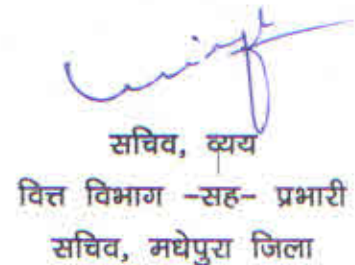 सचिव, व्यय
वित्त विभाग -सह- प्रभारी
सचिव, मधेपुरा जिला